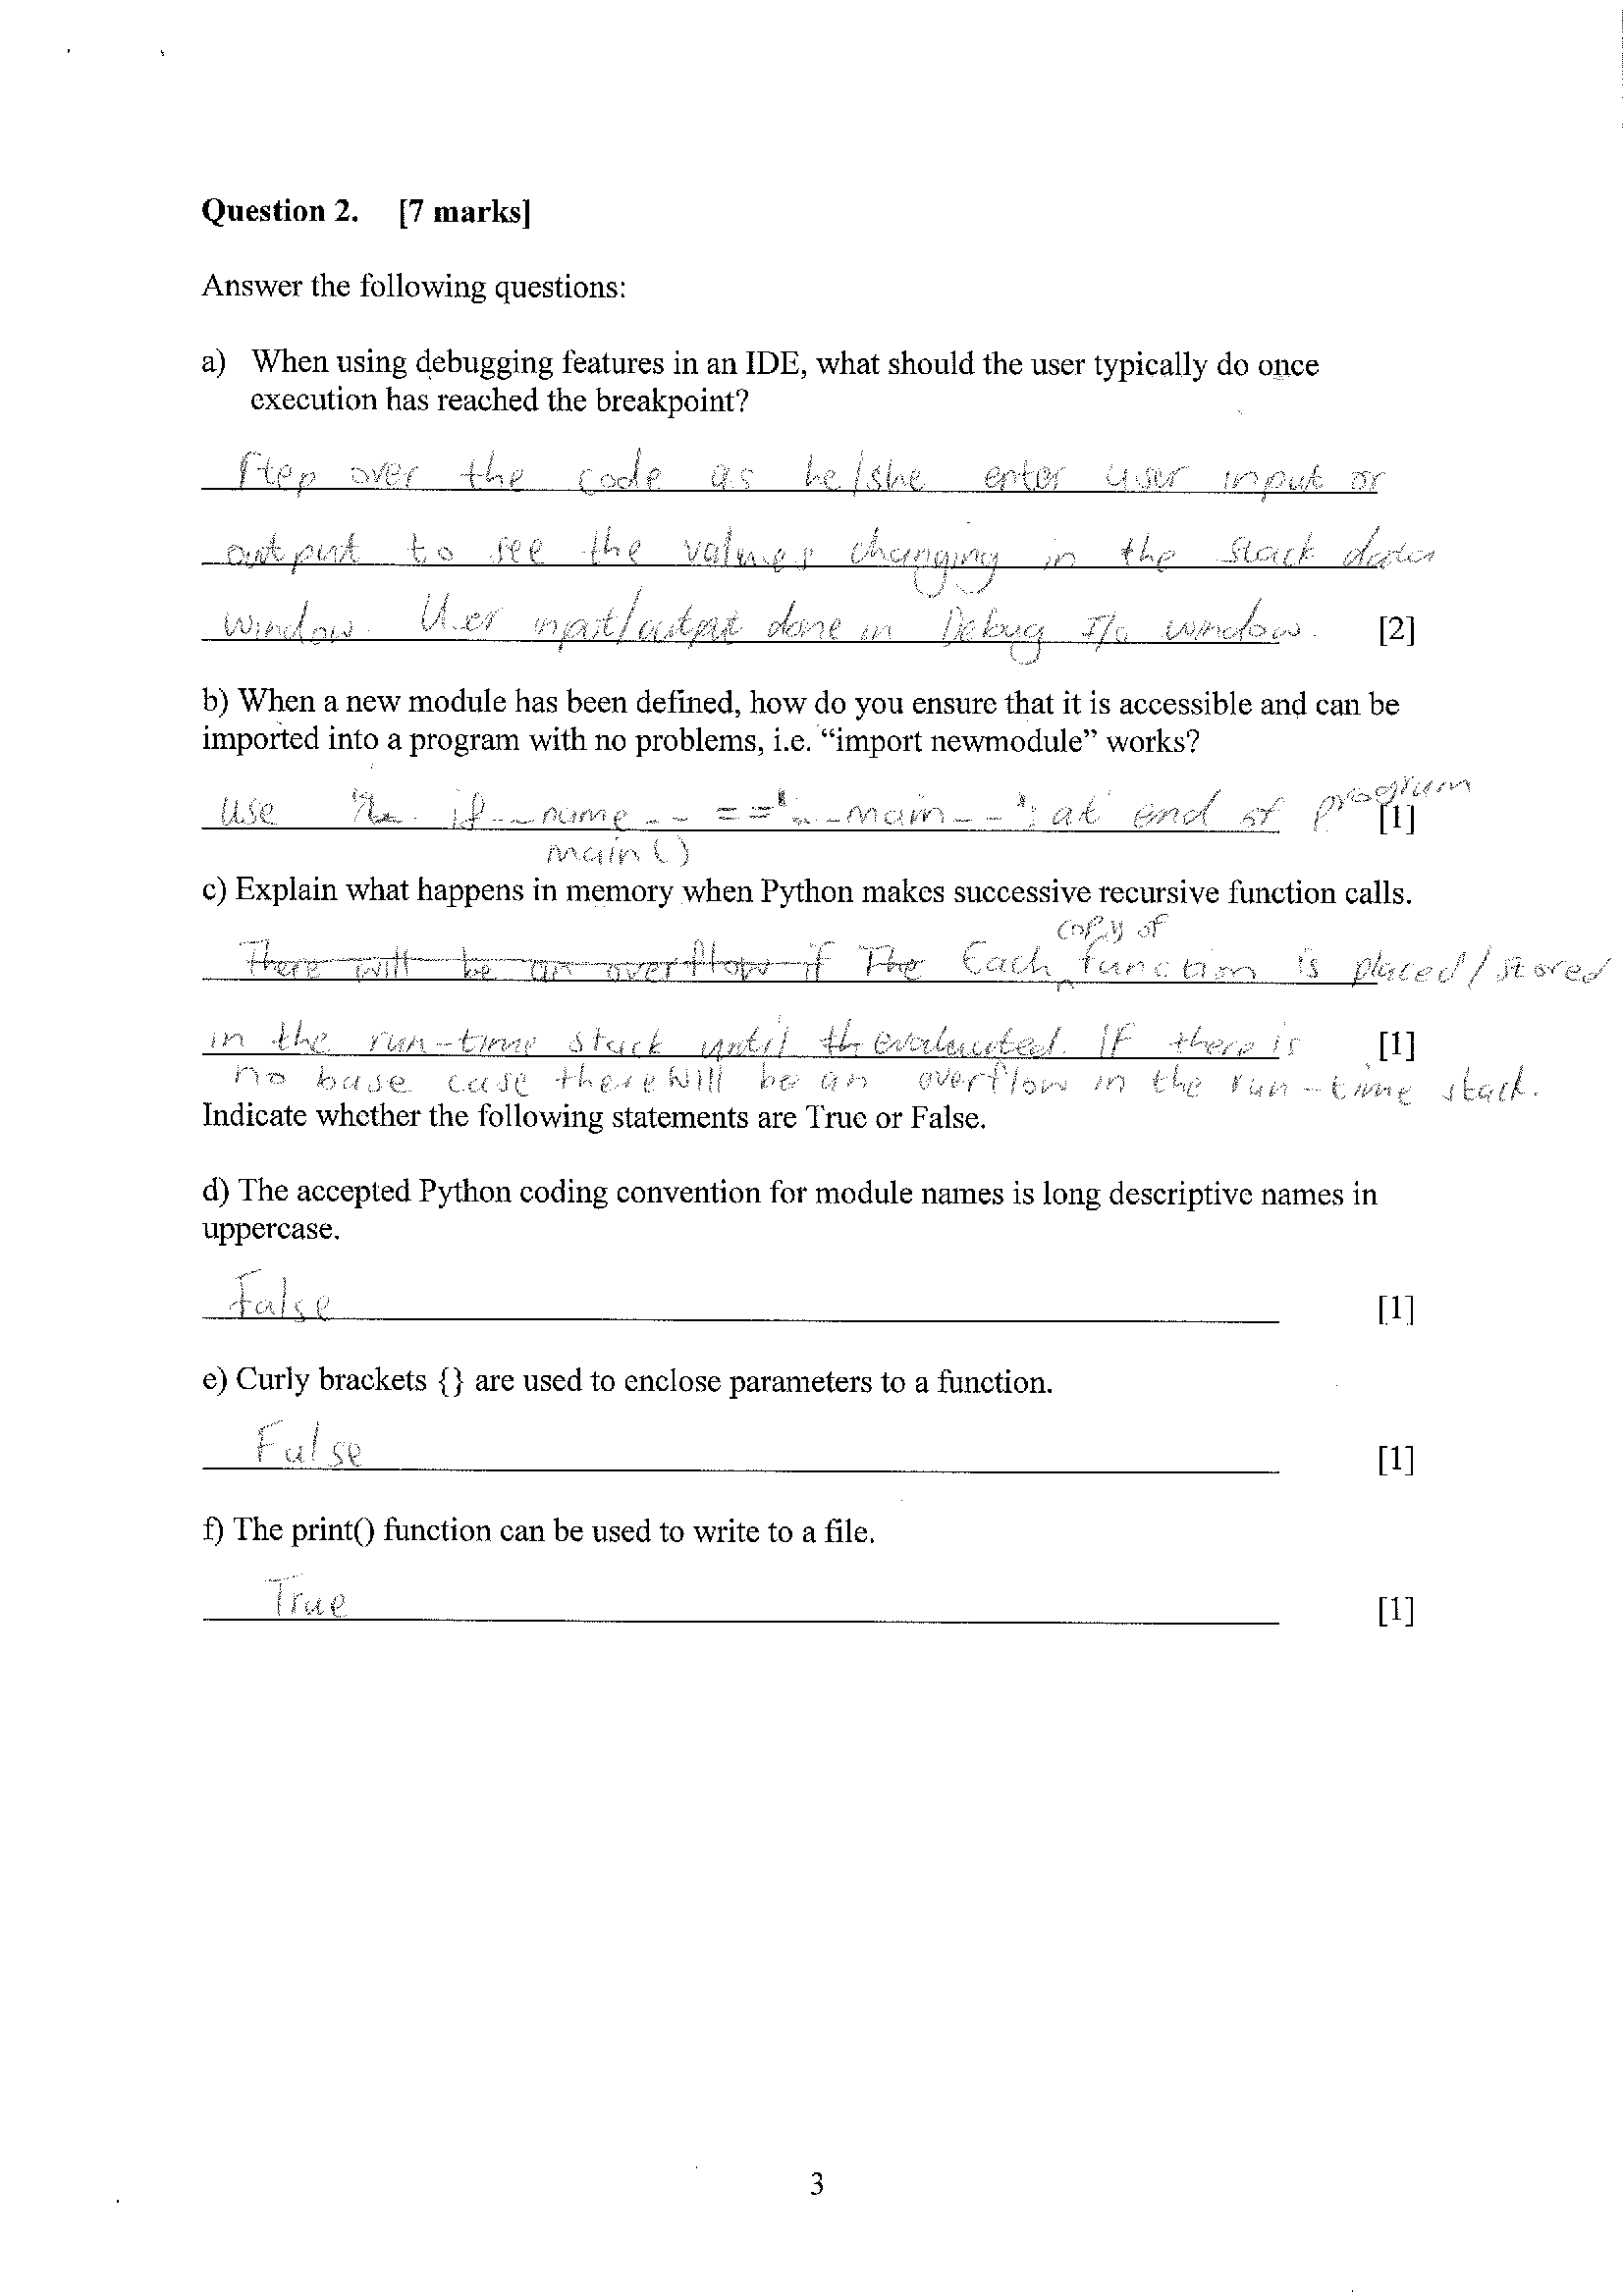 Question 2. [7 marks]
Answer the following questions:
a) When using debugging features in an IDE, what should the user typically do once
execution has reached the breakpoint?
Step over the code as he/she enter user input or
output to see the values changing in the stack data
window. User input/output done in Debug I/o window. [2]
b) When a new module has been defined, how do you ensure that it is accessible and can be
imported into a program with no problems, i.e. “import newmodule” works?
use if __name__ == '__main__': at end of program
[1]
main()
c) Explain what happens in memory when Python makes successive recursive function calls.
copy of
There will be an overflow if The Each function is placed/stored
in the run-time stack until th evaluated. If there is [1]
no base case there will be an overflow in the run-time stack.
Indicate whether the following statements are True or False.
d) The accepted Python coding convention for module names is long descriptive names in
uppercase.
False [1]
e) Curly brackets {} are used to enclose parameters to a function.
False [1]
f) The print() function can be used to write to a file.
True [1]
3